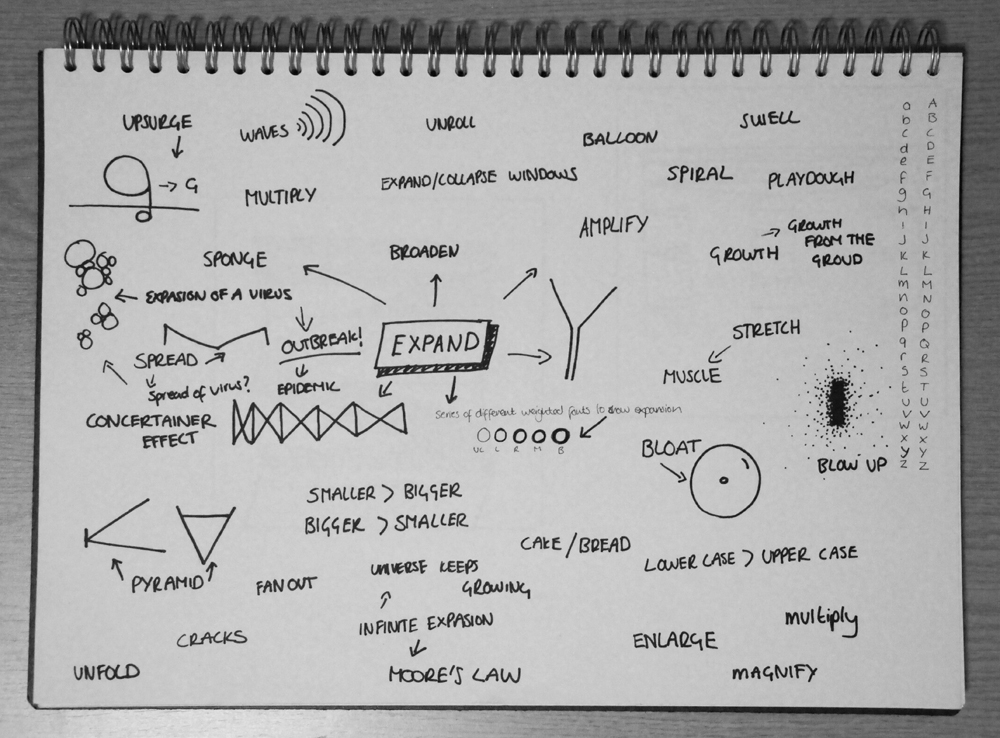 UPSURGE
WAVES
UNROLL
BALLOON
SWELL
G
MULTIPLY
EXPAND/COLLAPSE WINDOWS
SPIRAL
PLAYDOUGH
AMPLIFY
GROWTH
GROWTH
FROM THE
GROUD
SPONGE
BROADEN
EXPASION OF A VIRUS
OUTBREAK!
EPIDEMIC
EXPAND
SPREAD
Spread of virus?
STRETCH
MUSCLE
CONCERTAINER
EFFECT
Series of different weighted fonts to show expansion
UL L R M B
BLOAT
BLOW UP
SMALLER > BIGGER
BIGGER > SMALLER
CAKE/BREAD
LOWER CASE > UPPER CASE
PYRAMID
FAN OUT
UNIVERSE KEEPS
GROWING
INFINITE EXPASION
MOORE'S LAW
CRACKS
UNFOLD
ENLARGE
multiply
MAGNIFY
a A
b B
c C
d D
e E
f F
g G
h H
i I
j J
k K
L L
m M
n N
o O
p P
q Q
r R
s S
t T
u U
v V
w W
x X
y Y
z Z